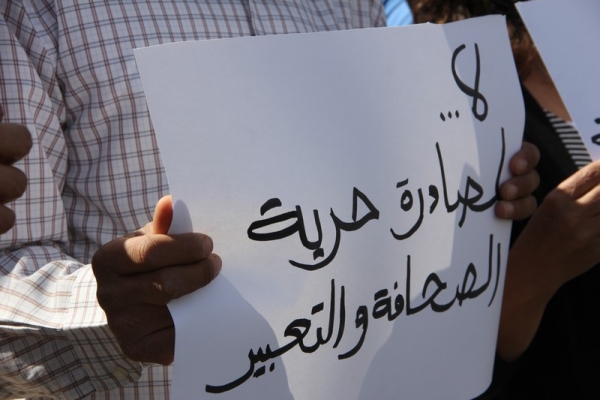 لا
...
لمصادرة حرية
الصحافة والتعبير